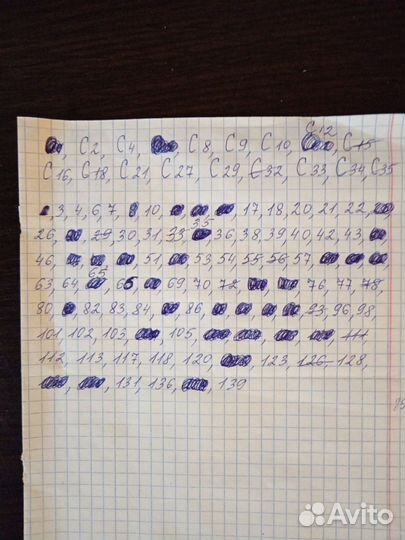 C12
C2, C4, C8, C9, C10, C15
C16, C18, C21, C27, C29, C32, C33, C34, C35
3, 4, 6, 7, 10, 17, 18, 20, 21, 22,
35
26, 29, 30, 31, 33, 36, 38, 39, 40, 42, 43,
46, 51, 53, 54, 55, 56, 57,
65
63, 64, 69, 70, 72, 76, 77, 78,
80, 82, 83, 84, 86, 93, 96, 98,
101, 102, 103, 105, 111
112, 113, 117, 118, 120, 123, 126, 128,
131, 136, 139
Avito